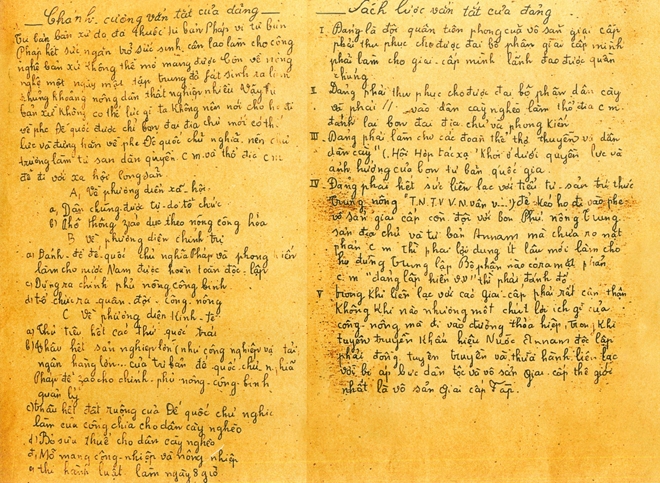 Chánh cương vắn tắt của đảng
Tư bản bản xứ đã thuộc tư bản Pháp vì tư bản
Pháp hết sức ngăn trở sức sinh sản làm cho công
nghệ bản xứ không thể mở mang được. Còn về nông
nghệ một ngày một tập trung đã phát sinh ra lắm
khủng hoảng nông dân thất nghiệp nhiều. Vậy tư
bản xứ không có thế lực gì ta không nên nói cho họ đi
về phe đế quốc được chỉ bọn đại địa chủ mới có thế
lực và đứng hẳn về phe đế quốc chủ nghĩa nên chủ
trương làm tư sản dân quyền c.m và thổ địa c.m
để đi tới xã hội cộng sản
A, Về phương diện xã hội
a, Dân chúng được tự do tổ chức
b) Phổ thông záo dục theo nông công hóa
B Về phương diện chính trị
a) Đánh đổ đế quốc chủ nghĩa Pháp và phong kiến
làm cho nước Nam được hoàn toàn độc lập
c) Dựng ra chính phủ nông công binh
d) tổ chức ra quân đội công nông
C Về phương diện Kinh tế
a) Thủ tiêu hết các thứ quốc trái
b) thâu hết sản nghiệp lớn (như công nghiệp vận tải
ngân hàng lớn... của tư bản đế quốc chủ nghĩa
Pháp để záo cho chính phủ nông công binh
quản lý
c) thâu hết đất ruộng của Đế quốc chủ nghĩa
làm của công chia cho dân cày nghèo
d) Bỏ sưu thuế cho dân cày nghèo
Mở mang công nghiệp và nông nghiệp
thi hành luật làm ngày 8 giờ
Sách lược vắn tắt của đảng
I Đảng là đội quân tiên phong của vô sản giai cấp
phải thu phục cho được đại bộ phận giai cấp mình
phải làm cho giai cấp mình lãnh đạo được quần
chúng
II Đảng phải thu phục cho được đại bộ phận dân cày
và phải // vào dân cày nghèo làm thổ địa c.m
đánh lại bọn đại địa chủ và phong kiến
III Đảng phải làm cho các đoàn thể thợ thuyền và dân
dân cày "(Hội Hợp tác xạ" Khỏi ở dưới quyền lực và
ảnh hưởng của bọn tư bản quốc gia
IV Đảng phải hết sức liên lạc với tiểu tư sản trí thức
trung nông T.N.TV V.N vân v...!) để kéo họ đi vào phe
vô sản giai cấp còn đối với bọn Phú nông trung
sản địa chủ và tư bản Annam mà chưa rõ mặt
phản c.m thì phải lợi dụng ít lâu mới làm cho
họ đứng trung lập Bộ phận nào có ra mặt phản
c.m "đảng lập hiến vv" thì phải đánh đổ
V trong Khi liên lạc với các giai cấp phải rất cẩn thận
Không Khi nào nhường một chút lợi ích gì của
công nông mà đi vào đường thỏa hiệp, trong Khi
tuyên truyền Khẩu hiệu Nước Annam độc lập
phải đồng tuyên truyền và thực hành liên lạc
với bị áp bức dân tộc và vô sản Giai cấp thế giới
nhất là vô sản Giai cấp Pháp.